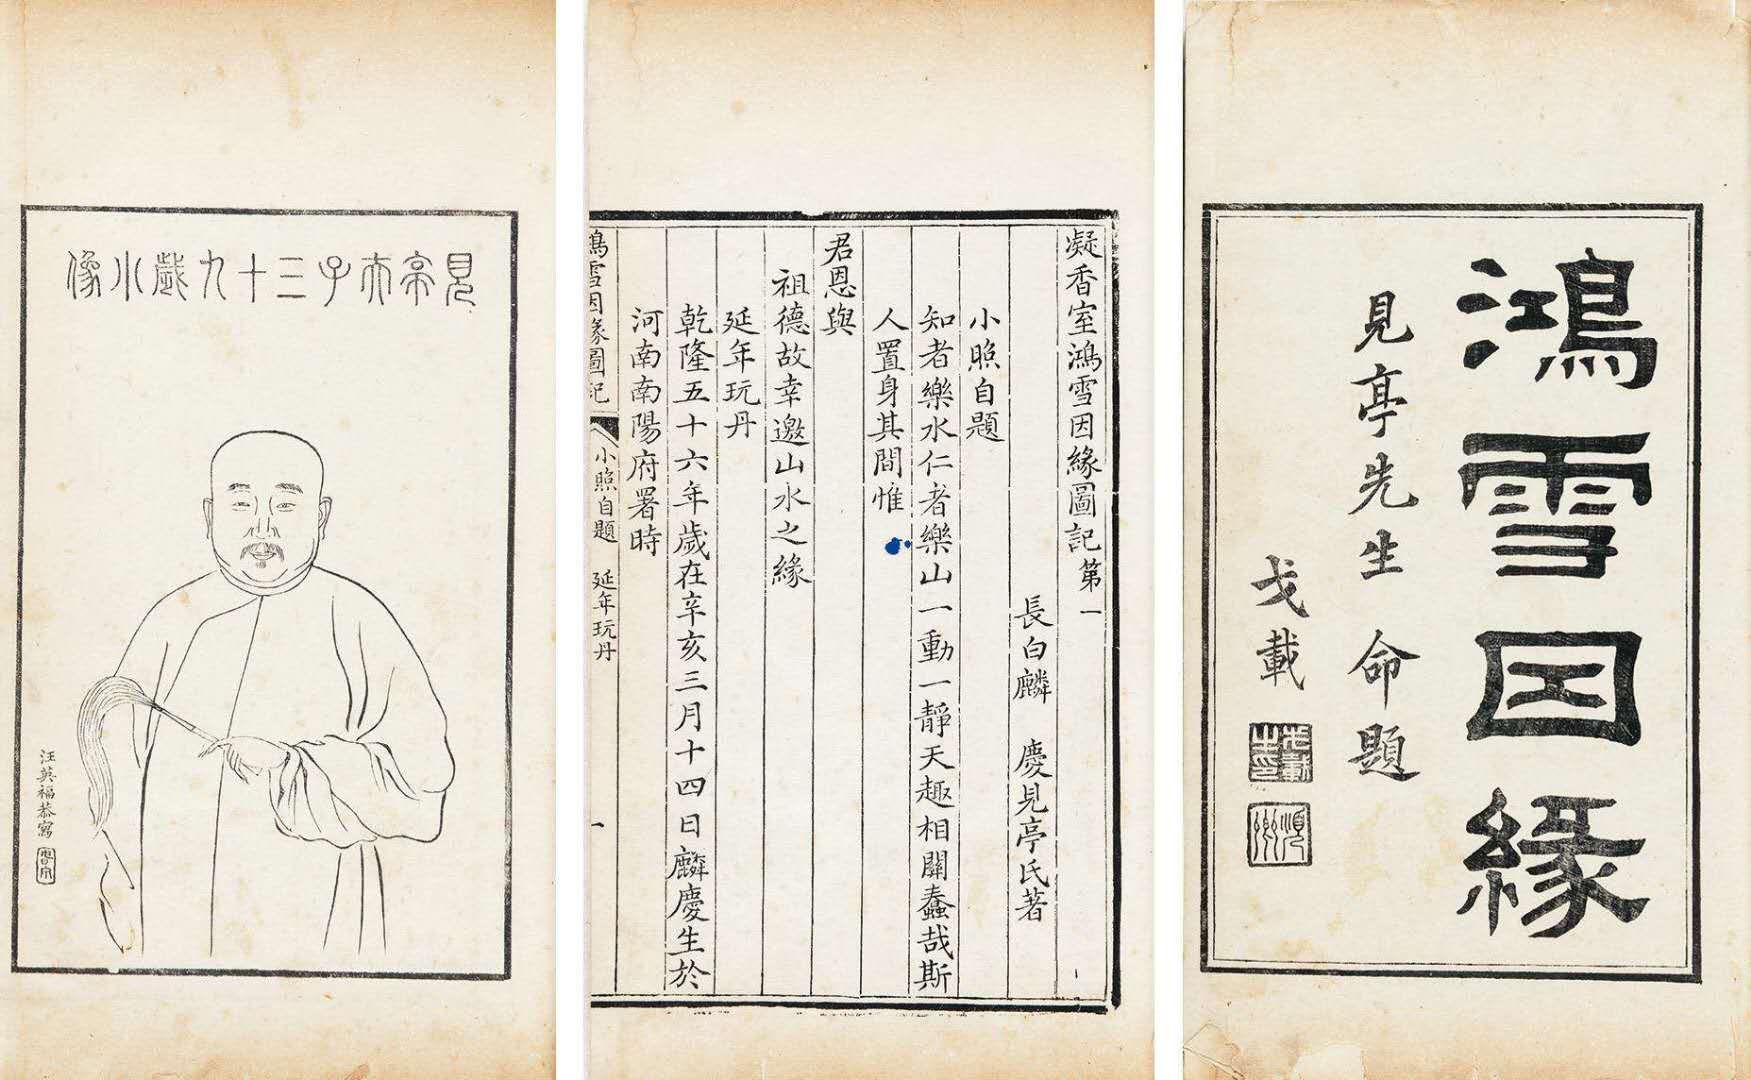 鴻雪囙緣
見亭先生命題
戈載
戈載之印
順卿
凝香室鴻雪因緣圖記第一
長白麟　慶見亭氏著
小照自題
知者樂水仁者樂山一動一靜天趣相關蠢哉斯
人置身其間惟
君恩與
祖德故幸邀山水之緣
延年玩丹
乾隆五十六年歲在辛亥三月十四日麟慶生於
河南南陽府署時
鴻雪因緣圖記　小照自題　延年玩丹　一
見亭夫子三十九歲小像
汪英福恭寫